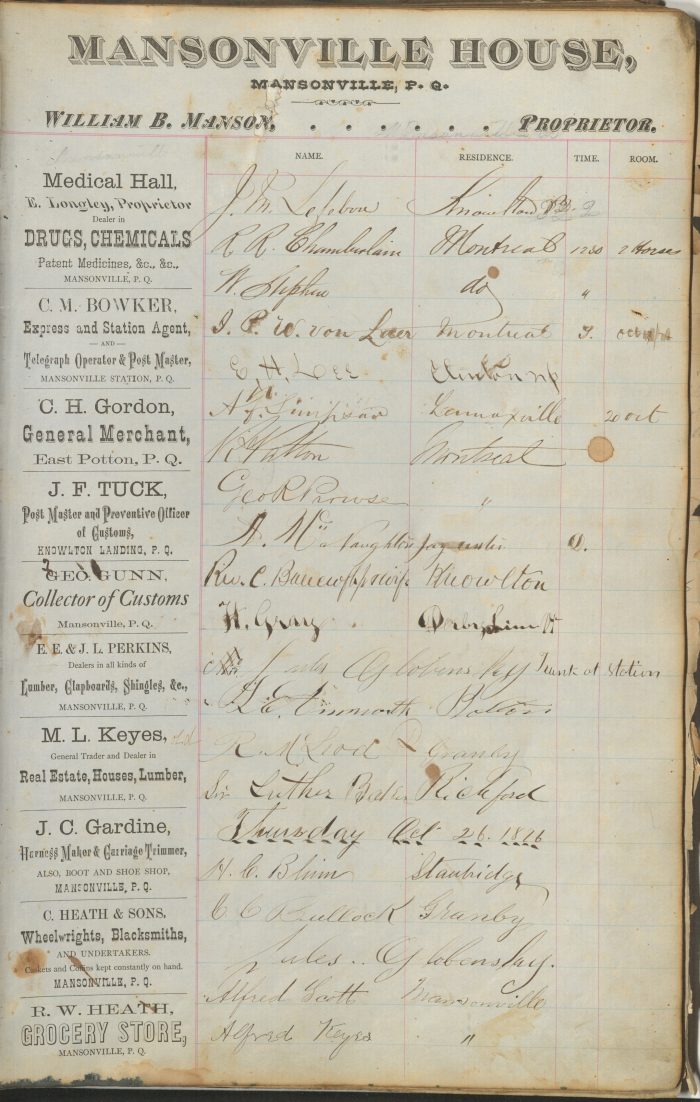 MANSONVILLE HOUSE,
MANSONVILLE, P. Q.
WILLIAM B. MANSON, . . . . . . PROPRIETOR.
NAME. RESIDENCE. TIME. ROOM.
Medical Hall,
E. Longley, Proprietor
Dealer in
DRUGS, CHEMICALS
Patent Medicines, &c., &c.,
MANSONVILLE, P. Q.
C. M. BOWKER,
Express and Station Agent,
— AND —
Telegraph Operator & Post Master,
MANSONVILLE STATION, P. Q.
C. H. Gordon,
General Merchant,
East Potton, P. Q.
J. F. TUCK,
Post Master and Preventive Officer
of Customs,
KNOWLTON LANDING, P. Q.
GEO. GUNN,
Collector of Customs
Mansonville, P. Q.
E. E. & J. L. PERKINS,
Dealers in all kinds of
Lumber, Clapboards, Shingles, &c.,
MANSONVILLE, P. Q.
M. L. Keyes,
General Trader and Dealer in
Real Estate, Houses, Lumber,
MANSONVILLE, P. Q.
J. C. Gardine,
Harness Maker & Carriage Trimmer,
ALSO, BOOT AND SHOE SHOP,
MANSONVILLE, P. Q.
C. HEATH & SONS,
Wheelwrights, Blacksmiths,
AND UNDERTAKERS.
Caskets and Coffins kept constantly on hand.
MANSONVILLE, P. Q.
R. W. HEATH,
GROCERY STORE,
MANSONVILLE, P. Q.
J. M. Lefebvre Knowlton
R. R. Chamberlain Montreal 1230 2 Horses
W. Stephen do "
J. P. W. von Laer Montreal
E H. LEE Clinton
Simpson Lennoxville 20 oct
Montreal
Geo R Prowse "
A. McNaughton
Rev. C. Knowlton
H. Gray Derby Line Vt
Jules Globensky Trunk at station
Potton
R. McLeod Granby
Luther Richford
Thursday Oct 26. 1876
H. C. Blinn Stanbridge
C C Bullock Granby
Jules Globensky.
Alfred Scott Mansonville
Alfred Keyes "